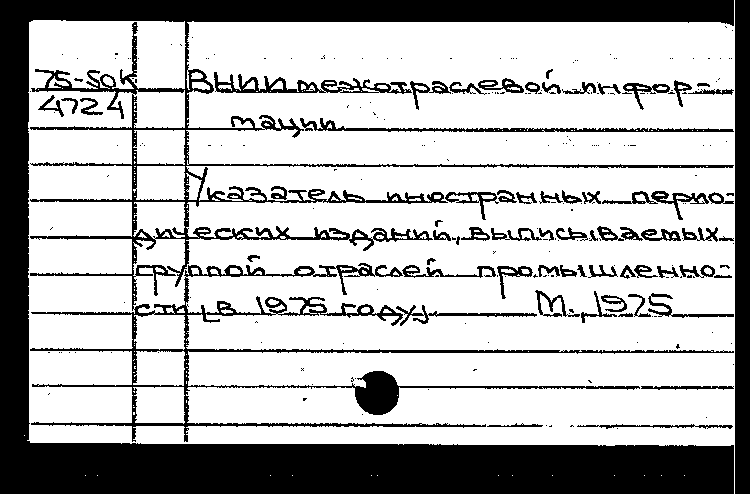 75-50к ВНИИ межотраслевой инфор-
4724 мации.
Указатель иностранных перио-
дических изданий, выписываемых
группой отраслей промышленно-
сти [в 1975 году]. М., 1975